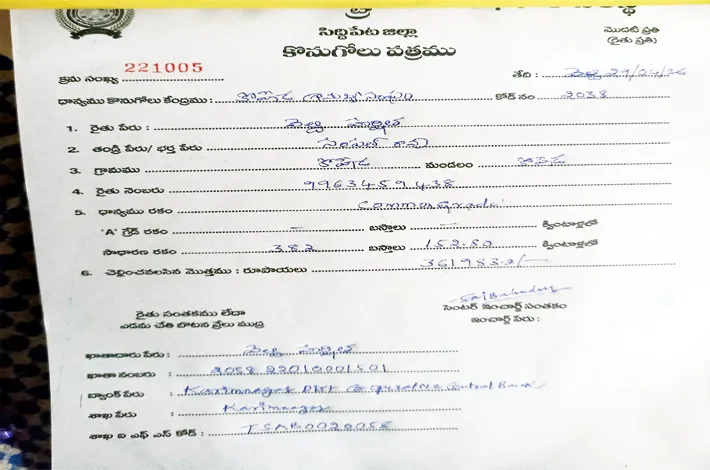 సిద్దిపేట జిల్లా
మొదటి ప్రతి
(రైతు ప్రతి)
కొనుగోలు పత్రము
క్రమ సంఖ్య 221005
తేది : 29/04/26
ధాన్యము కొనుగోలు కేంద్రము : కోహెడ కోడ్ నం 2038
1. రైతు పేరు :
2. తండ్రి పేరు/ భర్త పేరు సంపత్ రావు
3. గ్రామము కోహెడ మండలం కోహెడ
4. రైతు నెంబరు 9963459438
5. ధాన్యము రకం Common Grade
'A' గ్రేడ్ రకం — బస్తాలు — క్వింటాళ్లలో
సాధారణ రకం 382 బస్తాలు 152.80 క్వింటాళ్లలో
6. చెల్లించవలసిన మొత్తము : రూపాయలు 361983.2/-
సెంటర్ ఇంచార్జ్ సంతకం
ఇంచార్జ్ పేరు :
రైతు సంతకము లేదా
ఎడమ చేతి బొటన వ్రేలు ముద్ర
ఖాతాదారు పేరు :
ఖాతా నంబరు : 205822010001501
బ్యాంక్ పేరు : Karimnagar Dist Co operative Central Bank
శాఖ పేరు : Karimnagar
శాఖ ఐ ఎఫ్ ఎస్ కోడ్ : TSAB0020058